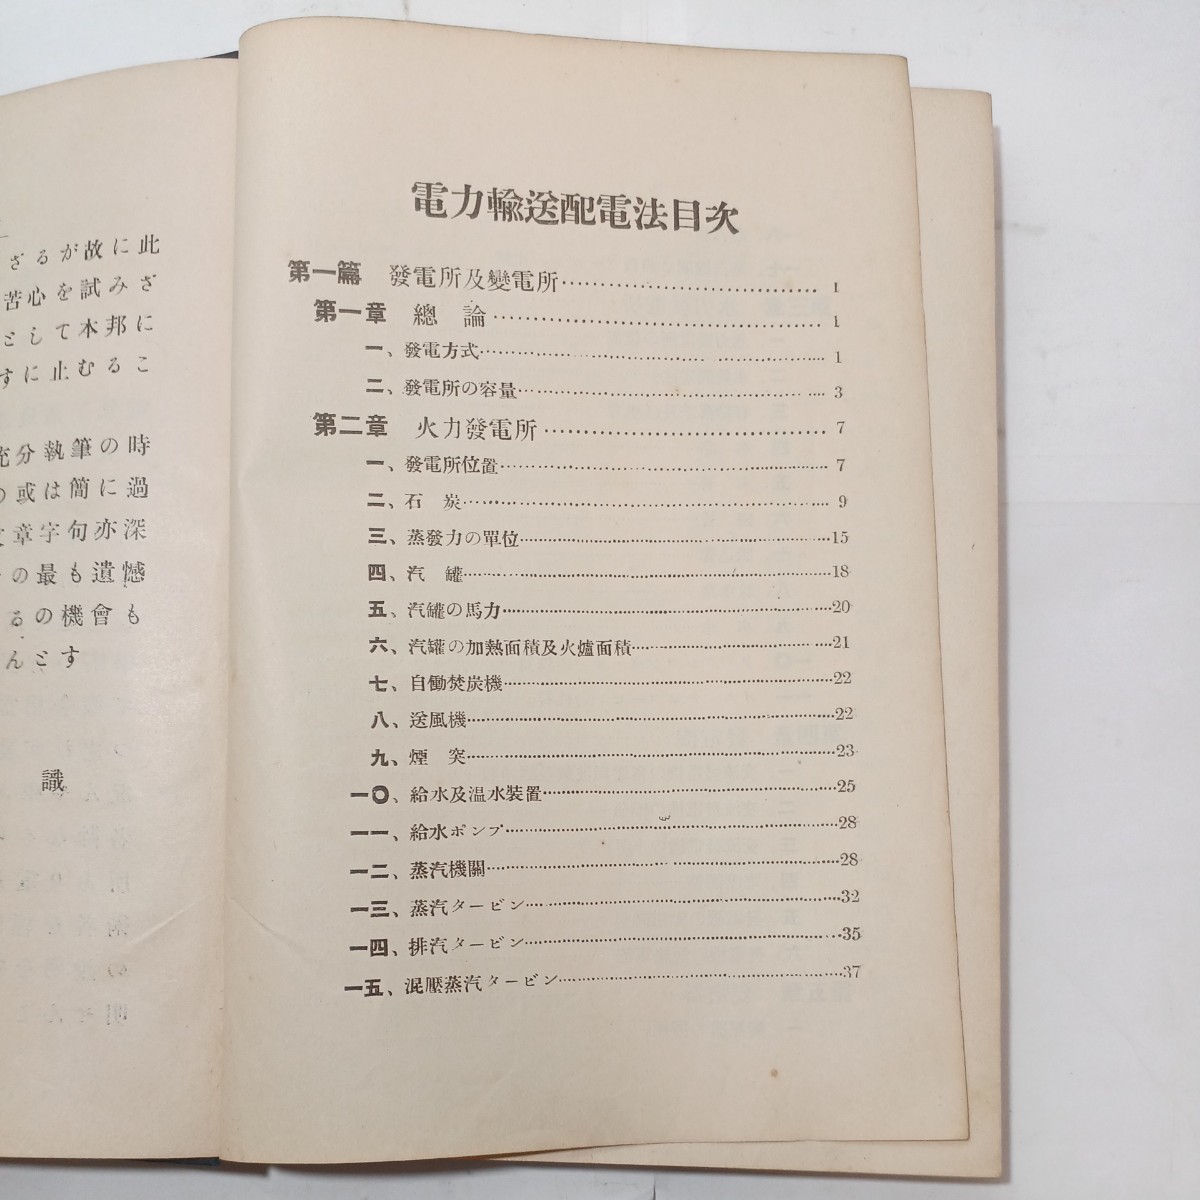 ざるが故に此
苦心を試みざ
として本邦に
すに止むるこ
充分執筆の時
の或は簡に過
文章字句亦深
の最も遺憾
るの機會も
んとす
識
電力輸送配電法目次
第一篇 發電所及變電所 1
第一章 總論 1
一、發電方式 1
二、發電所の容量 3
第二章 火力發電所 7
一、發電所位置 7
二、石炭 9
三、蒸發力の單位 15
四、汽罐 18
五、汽罐の馬力 20
六、汽罐の加熱面積及火爐面積 21
七、自働焚炭機 22
八、送風機 22
九、煙突 23
一〇、給水及温水裝置 25
一一、給水ポンプ 28
一二、蒸汽機關 28
一三、蒸汽タービン 32
一四、排汽タービン 35
一五、混壓蒸汽タービン 37